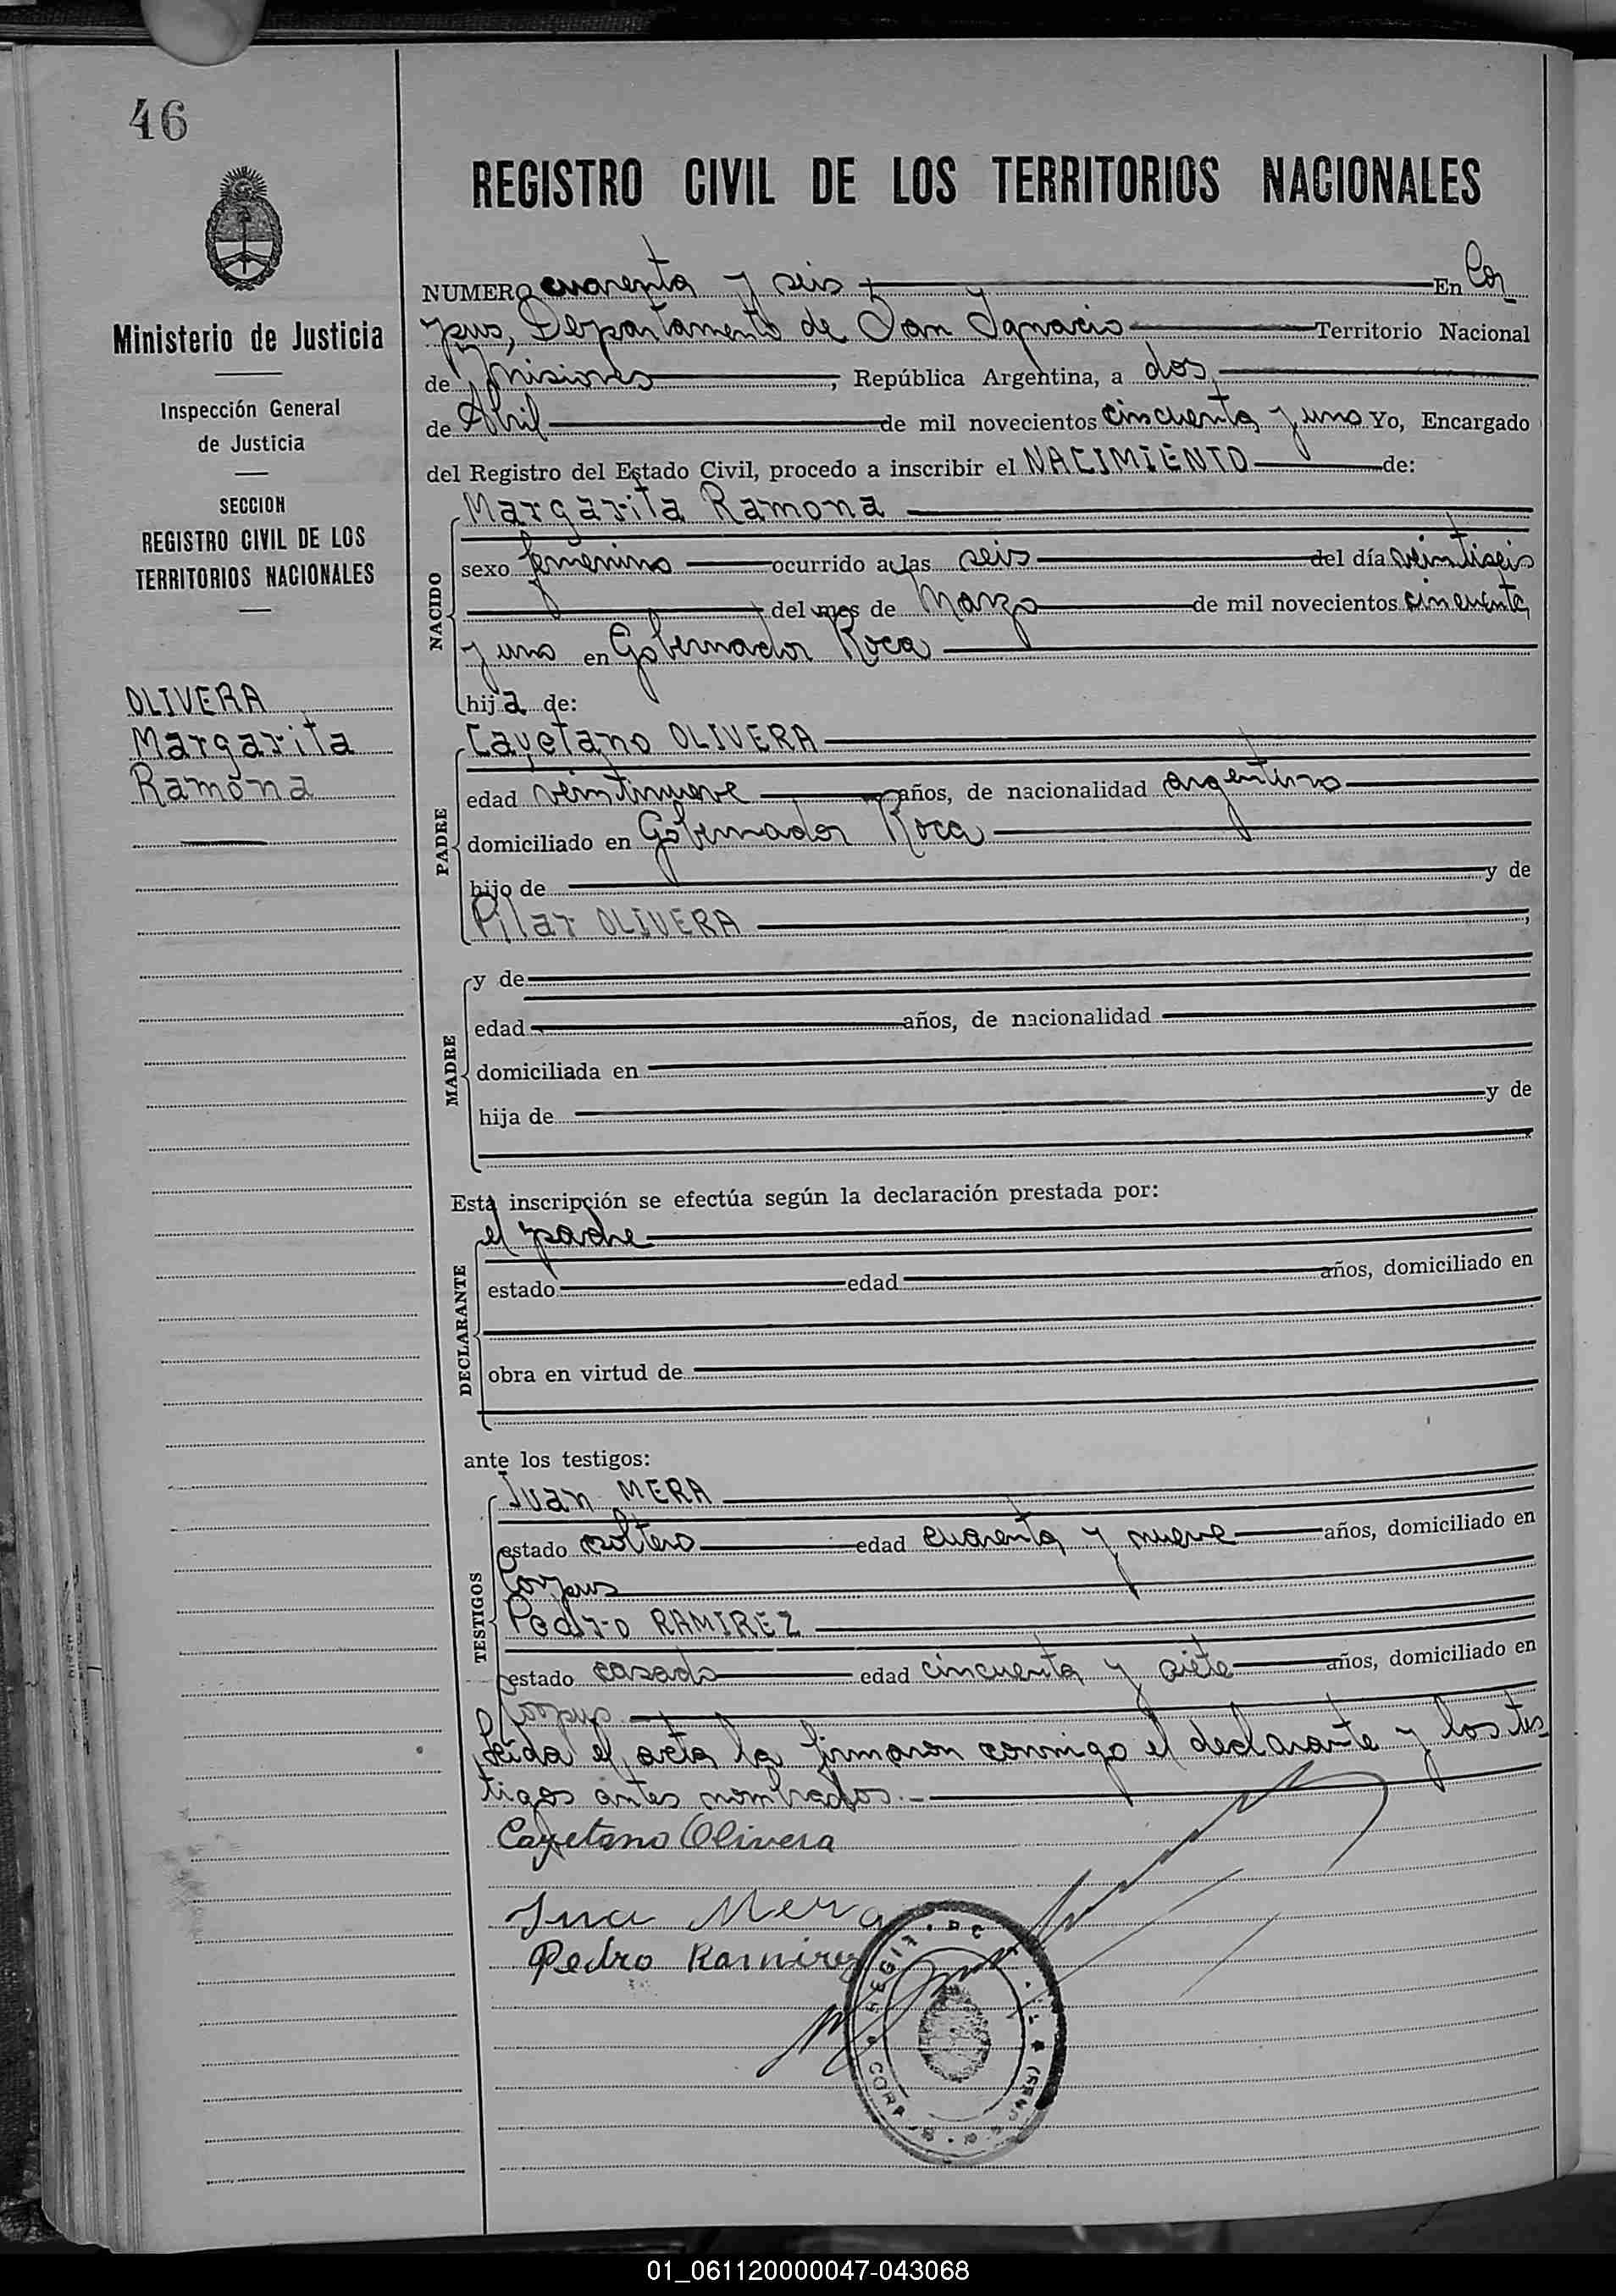 46
REGISTRO CIVIL DE LOS TERRITORIOS NACIONALES
Ministerio de Justicia
Inspección General
de Justicia
SECCION
REGISTRO CIVIL DE LOS
TERRITORIOS NACIONALES
OLIVERA
Margarita
Ramona
NUMERO cuarenta y seis En Cor
pus, Departamento de San Ignacio Territorio Nacional
de Misiones, República Argentina, a dos
de Abril de mil novecientos cincuenta y uno Yo, Encargado
del Registro del Estado Civil, procedo a inscribir el NACIMIENTO de:
NACIDO
Margarita Ramona
sexo femenino ocurrido a las seis del día veintiseis
del mes de Marzo de mil novecientos cincuenta
y uno en Gobernador Roca
hija de:
PADRE
Cayetano OLIVERA
edad veintinueve años, de nacionalidad argentino
domiciliado en Gobernador Roca
hijo de y de
Pilar OLIVERA
MADRE
y de
edad años, de nacionalidad
domiciliada en
hija de y de
Esta inscripción se efectúa según la declaración prestada por:
DECLARANTE
el padre
estado edad años, domiciliado en
obra en virtud de
ante los testigos:
TESTIGOS
Juan MERA
estado soltero edad cuarenta y nueve años, domiciliado en
Corpus
Pedro RAMIREZ
estado casado edad cincuenta y siete años, domiciliado en
Corpus
Leída el acta la firmaron conmigo el declarante y los tes-
tigos antes nombrados.-
Cayetano Olivera
Mera
Pedro Ramirez
01_061120000047-043068